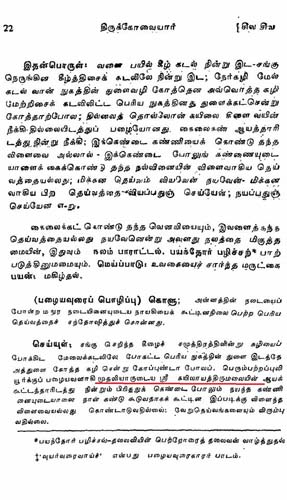 22
திருக்கோவையார்
இதன்பொருள்: வளை பயில் கீழ் கடல் நின்று இட-சங்கு
நெருங்கின கீழ்த்திசைக் கடலிலே நின்று இட; நேர்கழி மேல்
கடல் வான் நுகத்தின் துளைவழி கோத்தென அவ்வொத்த கழி
மேற்றிசைக் கடலிலிட்ட பெரிய நுகத்தினது துளைக்கட்சென்று
கோத்தாற்போல; தில்லைத் தொல்லோன் கயிலை கிளைவயின்
நீக்கி-தில்லையிடத்துப் பழையோனது. கைலைக்கண் ஆயத்தாரி
டத்து நின்று நீக்கி; இக்கெண்டை கண்ணியைக் கொண்டு தந்த
விளைவை அல்லால் - இக்கெண்டை போலுங் கண்ணையுடை
யாளைக் கைக்கொண்டு தந்த நல்வினையின் விளைவாகிய தெய்
வத்தையல்லது; மிக்கன தெய்வம் வியவேன் நயவேன்- மிக்கன
வாகிய பிற தெய்வத்தை வியப்பதுஞ் செய்யேன்; நயப்பதுஞ்
செய்யேன் எ-று.
கைலைக்கட் கொண்டு தந்த வெனவியையும், இவளைத் தந்த
தெய்வத்தையல்லது நயவேனென்று அவளது நலத்தை மிகுத்த
மையின், இதுவும் நலம் பாராட்டல். பயக்தோர் பழிச்சற்* பாற்
படுத்தினுமமையும். மெய்ப்பாடு: உவகையைச் சார்ந்த மருட்கை
பயன்: மகிழ்தல்.
(பழையவுரைப் பொழிப்பு) கொளு: அன்னத்தின் நடையைப்
போன்ற மதுர நடையினையுடைய நாயகியைக் கூட்டினதிலை பெற்ற பெரிய
தெய்வத்தைச் சந்தோஷித்துச் சொன்னது.
செய்யுள்: சங்கு செறிந்த கீழைச் சமுத்திரத்தினின்று கழியைப்
போக்கிட மேலைக்கடலிலே போகட்ட பெரிய நுகத்தின் துளை இடத்தே
அத்துளை கோத்த கழி சென்று கோப்புண்டா போல. பெரும்பற்றப்புலி
யூர்க்குப் பழையனாகி முதலியாருடைய ஸ்ரீ கயிலாயத்திருமலையின் ஆயக்
கூட்டந்தாரிடத்து நின்றும் பிரித்துக் கெண்டை போலும் நயந்த கண்ணி
னையுடையாளை நான் கண்டு கூடுவதாகக் கூட்டின இப்படிக்கு விளைந்த
விளைவையல்லது கொண்டாடுவதில்லை; வேறுதெய்வங்களையும் விரும்பு
வதில்லை.
*பயந்தோர் பழிச்சல்-தலைவியின் பெற்றோரைத் தலைவன் வாழ்த்துதல்
‡'வுயர்வரைவாய்ச்' என்பது பழையவுரைகாரர் பாடம்.